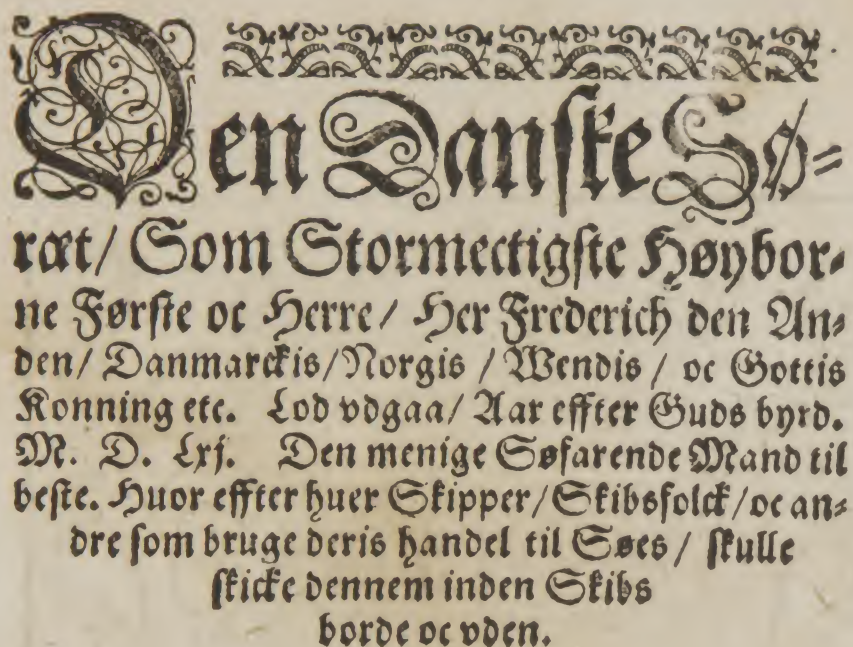 Den Danske Sø-
ræt/ Som Stormectigste Høybor-
ne Første oc Herre/ Her Frederich den An-
den/ Danmarckis/Norgis / Wendis / oc Gottis
Konning etc. Lod vdgaa/ Aar effter Guds byrd.
M. D. Lxj. Den menige Søfarende Mand til
beste. Huor effter huer Skipper/Skibsfolck/oc an-
dre som bruge deris handel til Søes/ skulle
skicke dennem inden Skibs
borde oc vden.